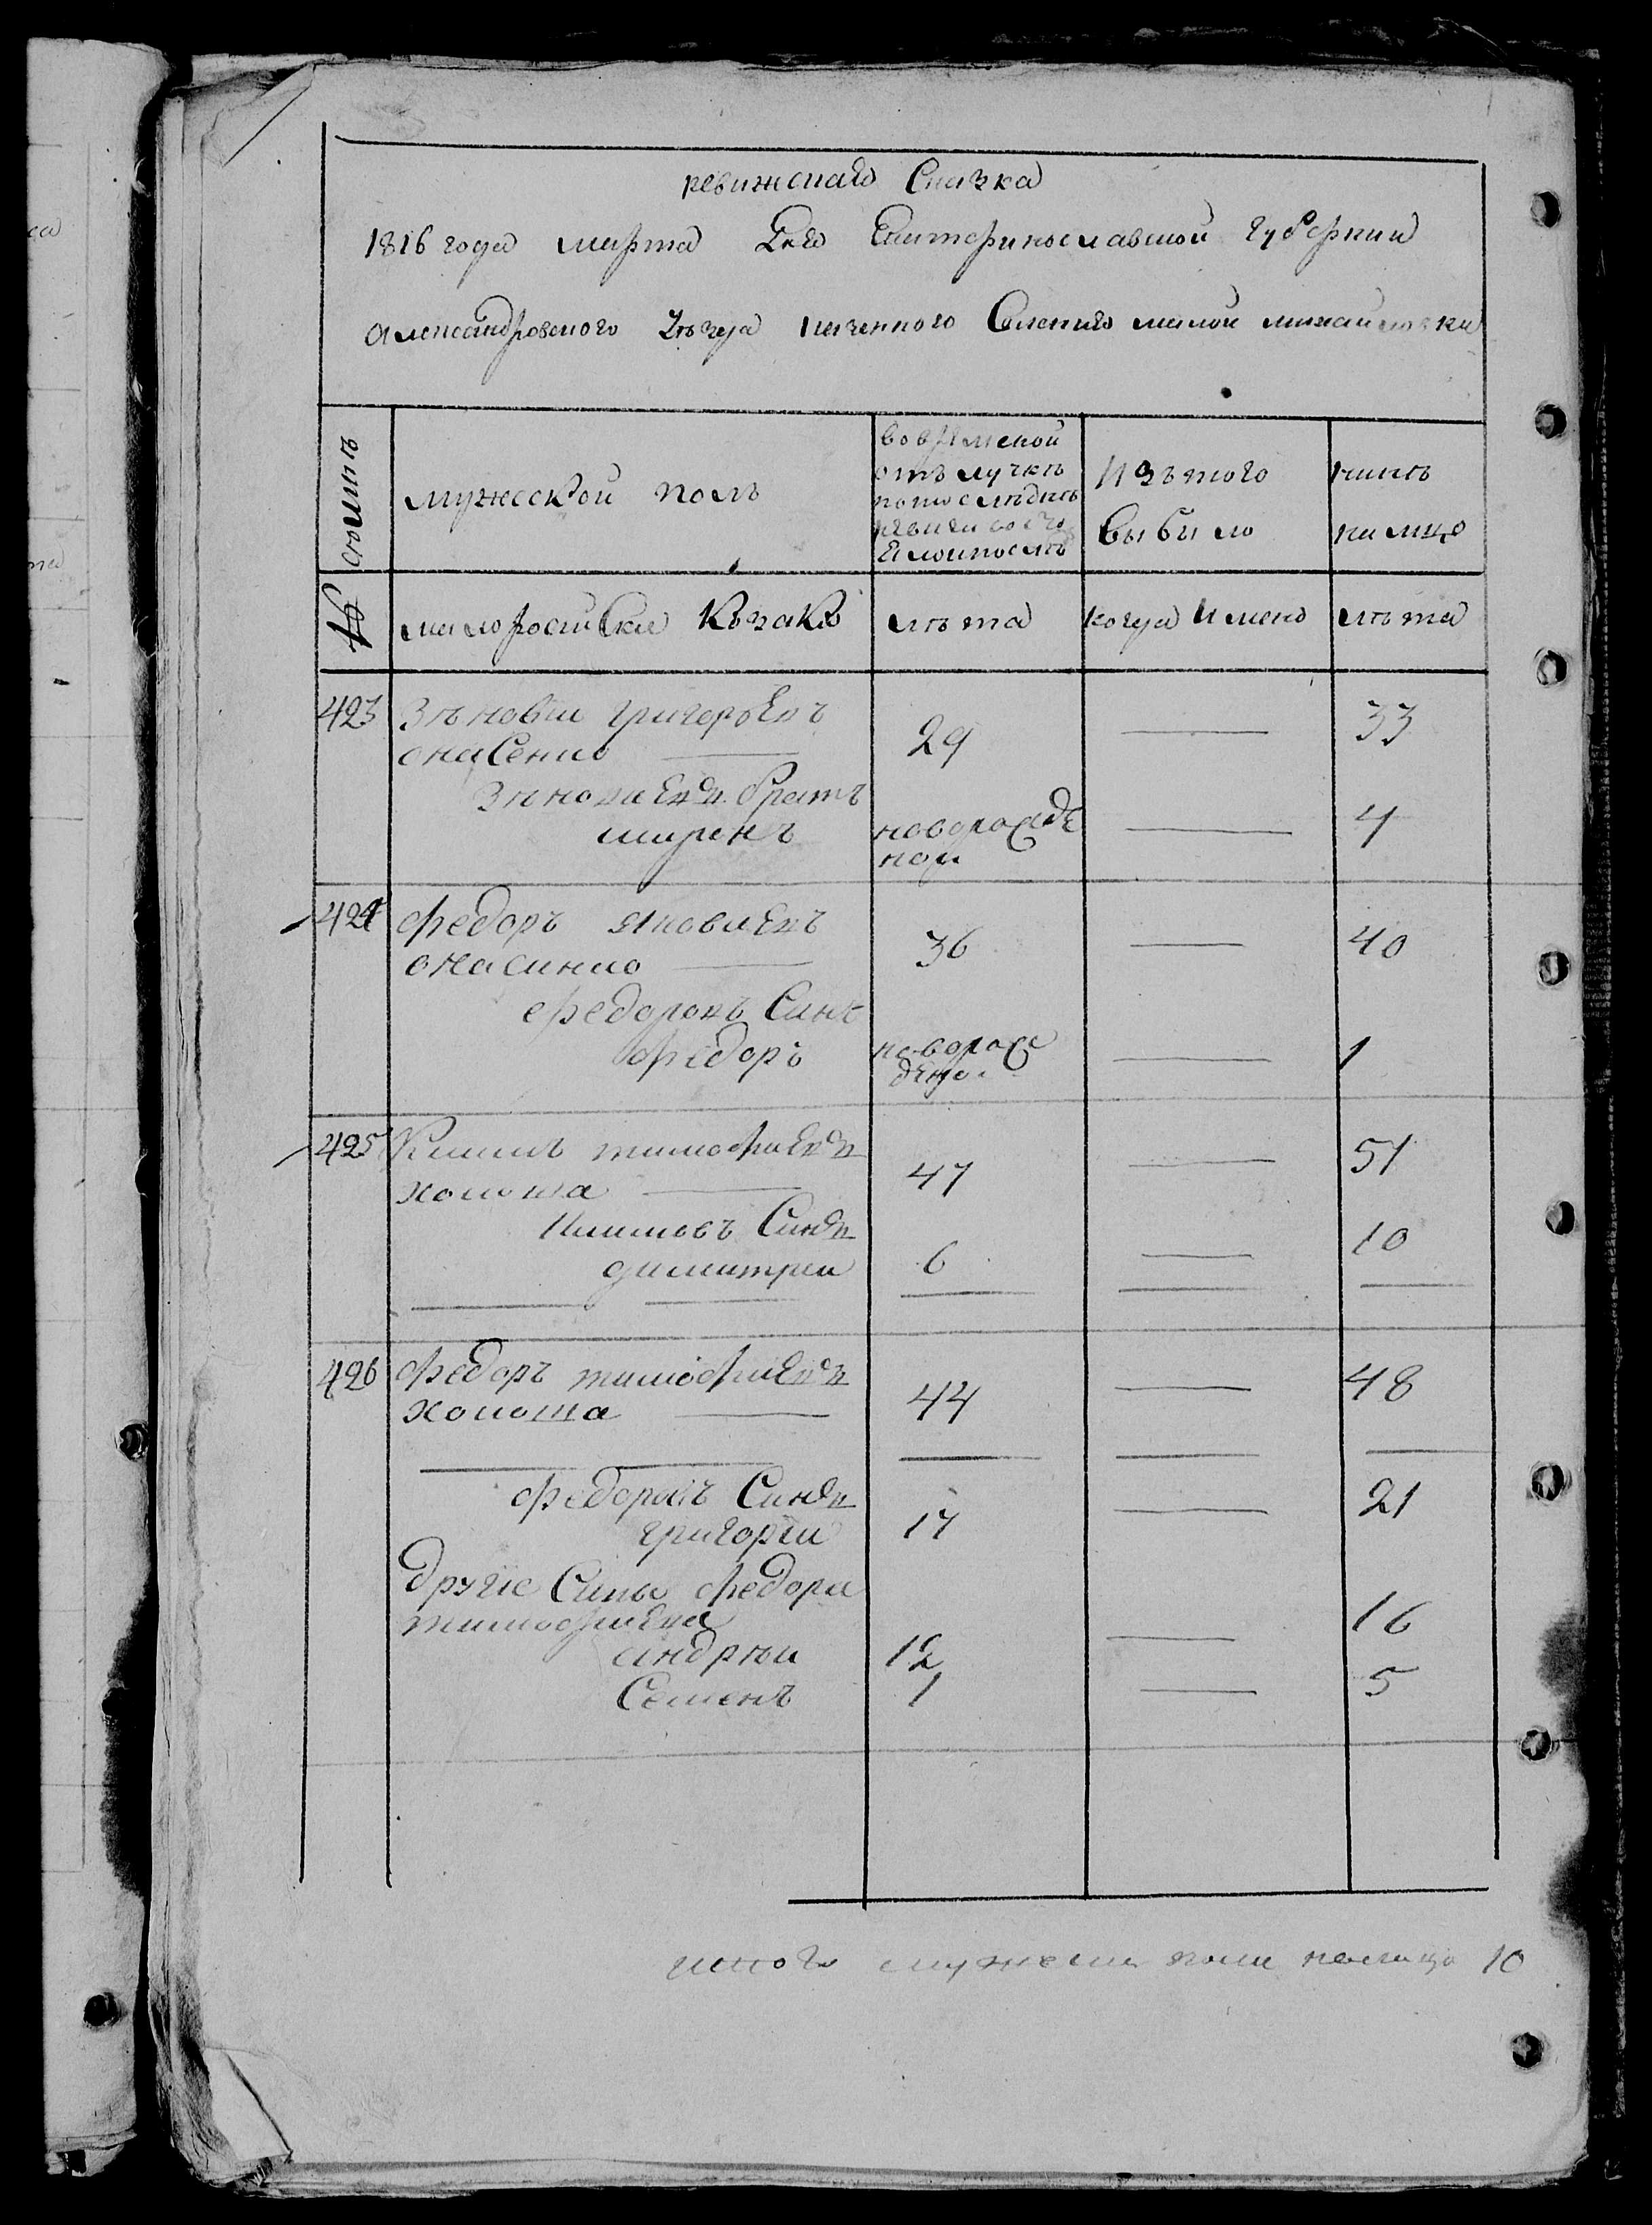 ревижская Сказка
1816 года марта 2го Екатеринославской губернии
Александровского уѣзда казенного Селения малой михайловки
мужеской полъ
отъ лучкѣ
Изъ того
Выбыло
нинѣ
на лицо
малоросийские Козаки
лѣта
когда имено
лѣта
423 Зѣновии григорьевъ
29 — 33
онасенко —
братъ
миронъ
новорожде
ной
— 4
424 федоръ яковлевъ
онасинко —
36 — 40
федоровъ Синъ
федоръ
новорож
дено
— 1
425 Климъ тимофиевъ
холоша —
47 — 51
Климовъ Синъ
димитреи
6 — 10
426 федоръ тимофиевъ
холоша —
44 — 48
федоровъ Синъ
григории
17 — 21
другие Сины федора
тимофиева
андрѣи
12 — 16
Семенъ
1 — 5
итого мужска пола налицо 10